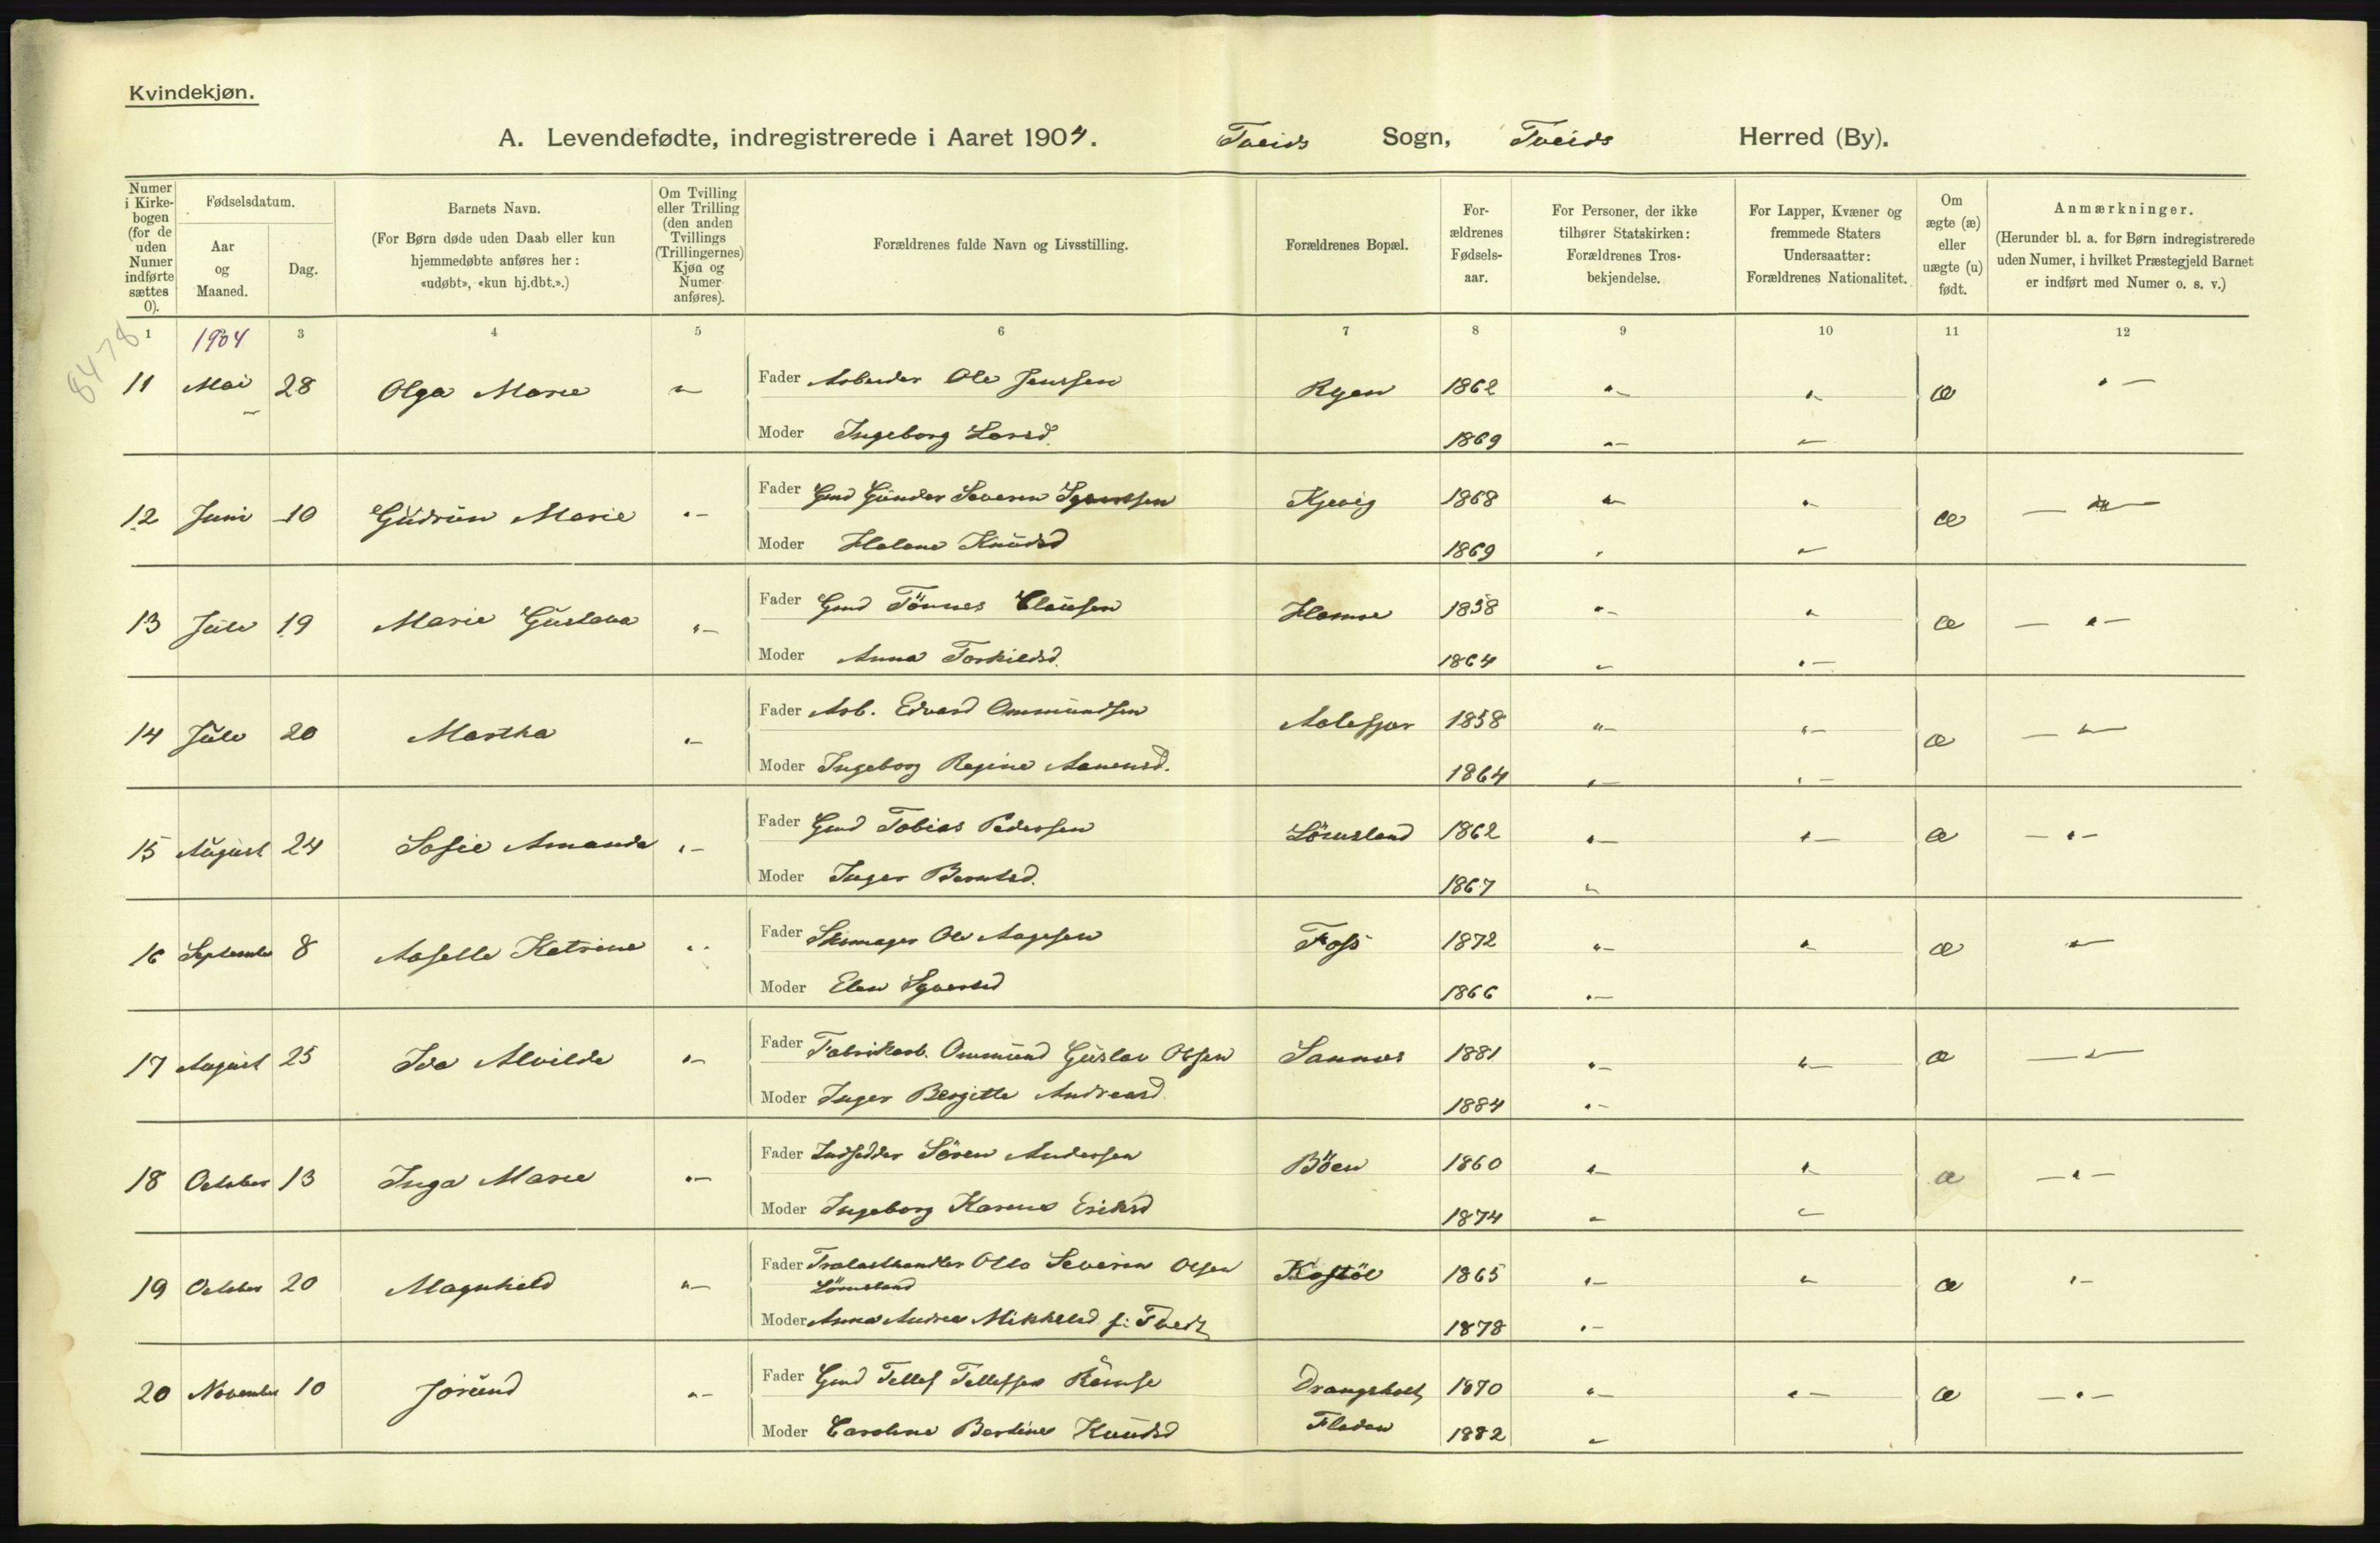 Kvindekjøn.
A. Levendefødte, indregistrerede i Aaret 1904. Tveids Sogn, Tveids Herred (By).
Numer i Kirkebogen (for de uden Numer indførte sættes 0).
Fødselsdatum.
Aar og Maaned.
Dag.
Barnets Navn.
(For Børn døde uden Daab eller kun hjemmedøbte anføres her: «udøbt», «kun hj.dbt.».)
Om Tvilling eller Trilling (den anden Tvillings (Trillingernes) Kjøn og Numer anføres).
Forældrenes fulde Navn og Livsstilling.
Forældrenes Bopæl.
Forældrenes Fødselsaar.
For Personer, der ikke tilhører Statskirken: Forældrenes Trosbekjendelse.
For Lapper, Kvæner og fremmede Staters Undersaatter: Forældrenes Nationalitet.
Om ægte (æ) eller uægte (u) født.
Anmærkninger.
(Herunder bl. a. for Børn indregistrerede uden Numer, i hvilket Præstegjeld Barnet er indført med Numer o. s. v.)
1 2 3 4 5 6 7 8 9 10 11 12
8478
1904
11 Mai 28 Olga Marie "- Fader Arbeider Ole Jenssen Ryen 1862 "- "- æ "-
Moder Ingeborg Larsd. 1869 "- "-
12 Juni 10 Gudrun Marie "- Fader Gmd Gunder Severin Syvertsen Kjevig 1868 "- "- æ — "—
Moder Helene Knudsd 1869 " "-
13 Juli 19 Marie Gustava "- Fader Gmd Tönnes Clausen Hamre 1858 "- " æ — "-
Moder Anna Torkildsd. 1864 "- "-
14 Juli 20 Martha "- Fader Arb. Edvard Ommundsen Aalefjær 1858 "- "- æ — "—
Moder Ingeborg Regine Aanensd. 1864 "- "-
15 August 24 Sofie Amanda "- Fader Gmd Tobias Pedersen Lömsland 1862 "- "- æ — "-
Moder Inger Berntsd. 1867 "
16 September 8 Aaselle Katrine "- Fader Skomager Ole Aagesen Foss 1872 "- "- æ "-
Moder Elen Syvertsd 1866 "-
17 August 25 Ida Alvilde "- Fader Fabrikarb. Ommund Gustav Olsen Sannes 1881 "- "- æ — "—
Moder Inger Bergitte Andreasd. 1884 "-
18 October 13 Inga Marie "- Fader Indsidder Sören Andersen Böen 1860 "- "- æ — "-
Moder Ingeborg Karine Eriksd 1874 "- "-
19 October 20 Magnhild "- Fader Trælasthandler Otto Severin Olsen Kostöl 1865 "- "- æ "-
Lömsland
Moder Anna Andrea Mikkelsd f: Tvedt 1878 "-
20 November 10 Jorund "- Fader Gmd Tellef Tellefsen Rämse Drangsholt 1870 "- "- æ — "-
Moder Caroline Bertine Knudsd Fladen 1882 "-